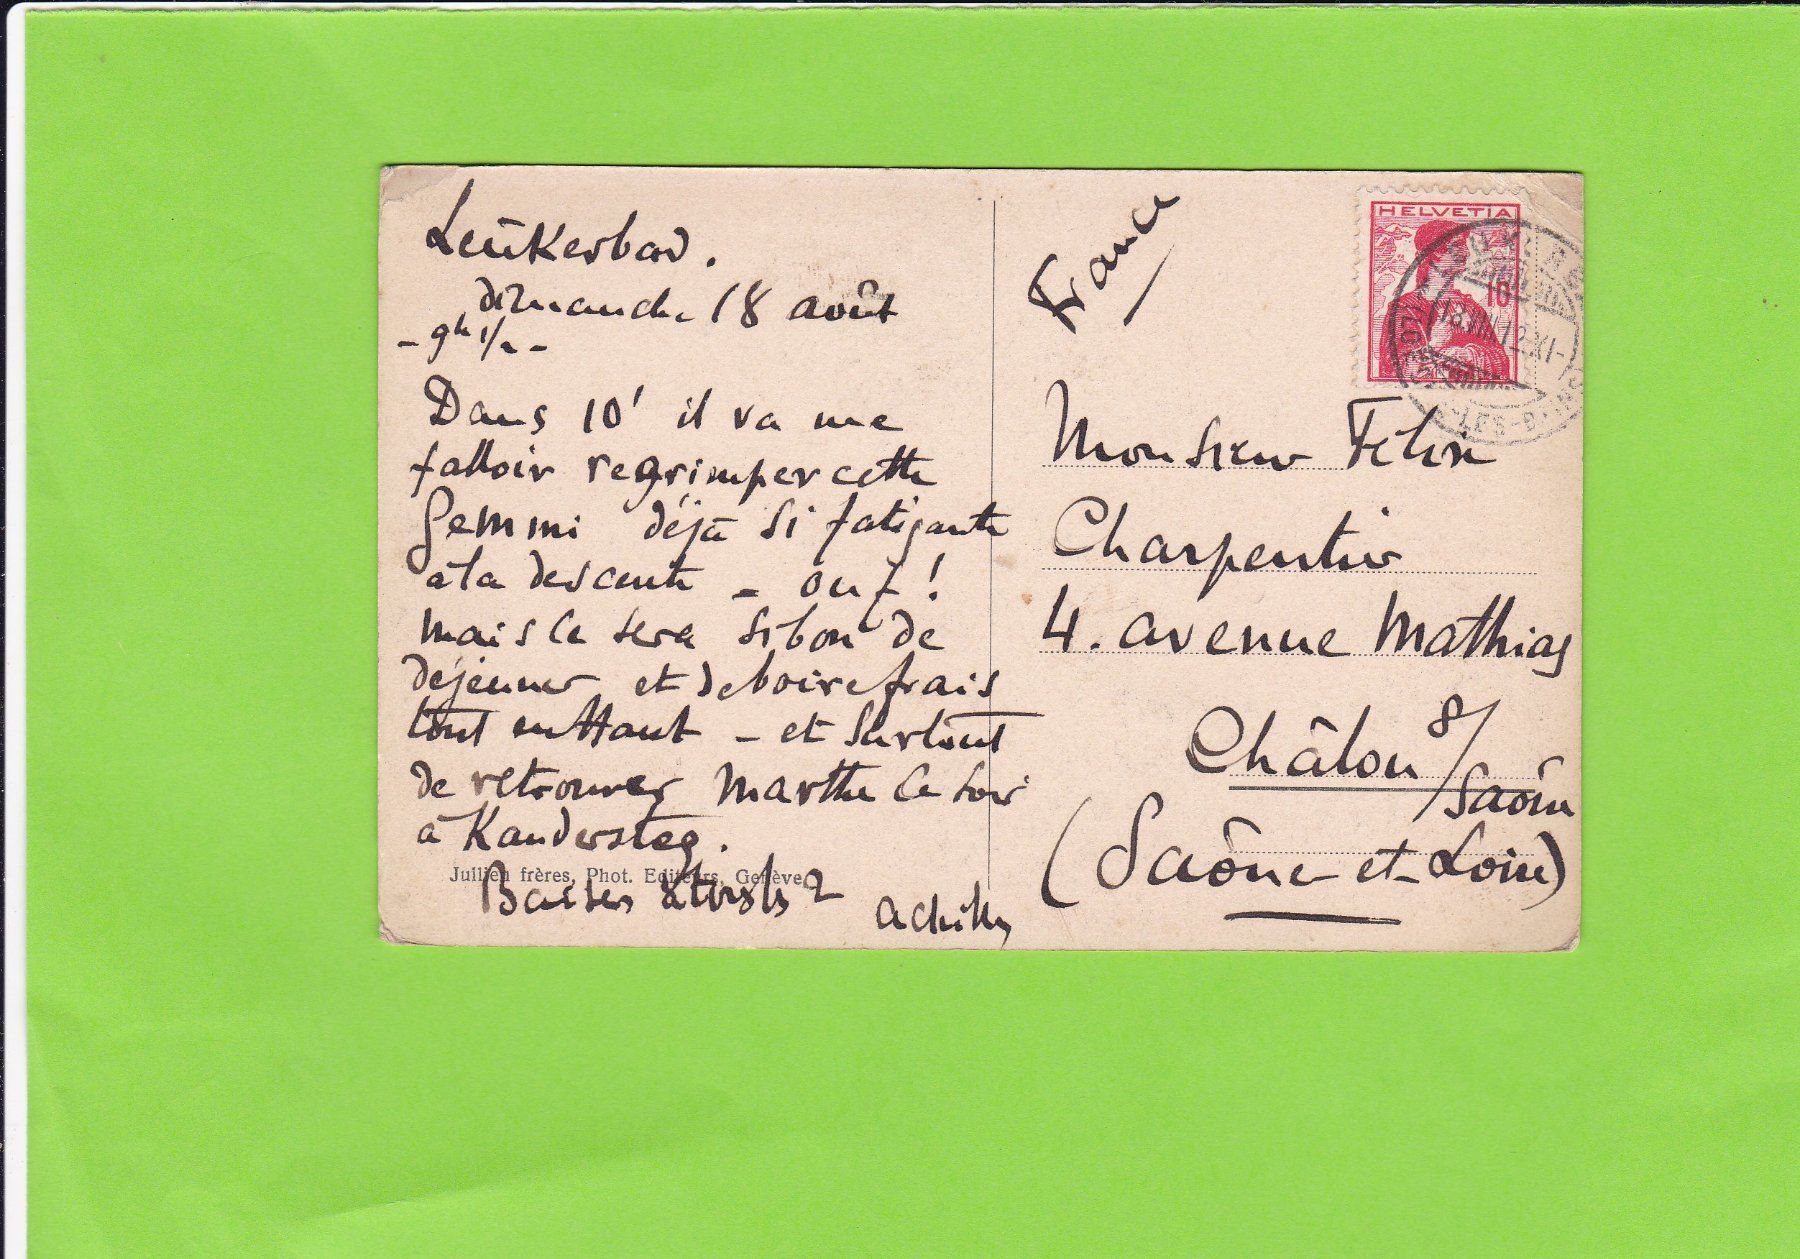 Leukerbad.
dimanche 18 août
- 9h 1/2 -
Dans 10' il va me
falloir regrimper cette
Gemmi déjà si fatigante
à la descente - ouf !
mais ce sera si bon de
déjeuner et de boire frais
tout en Haut - et surtout
de retrouver Marthe ce soir
à Kandersteg.
Jullien frères, Phot. Editeurs, Genève
Baisers à tous les 2
Achille
France
HELVETIA
10
18.VIII.12.XI-
-LES-B
Monsieur Félix
Charpentier
4. avenue Mathias
Châlon s/
Saône
(Saône-et-Loire)